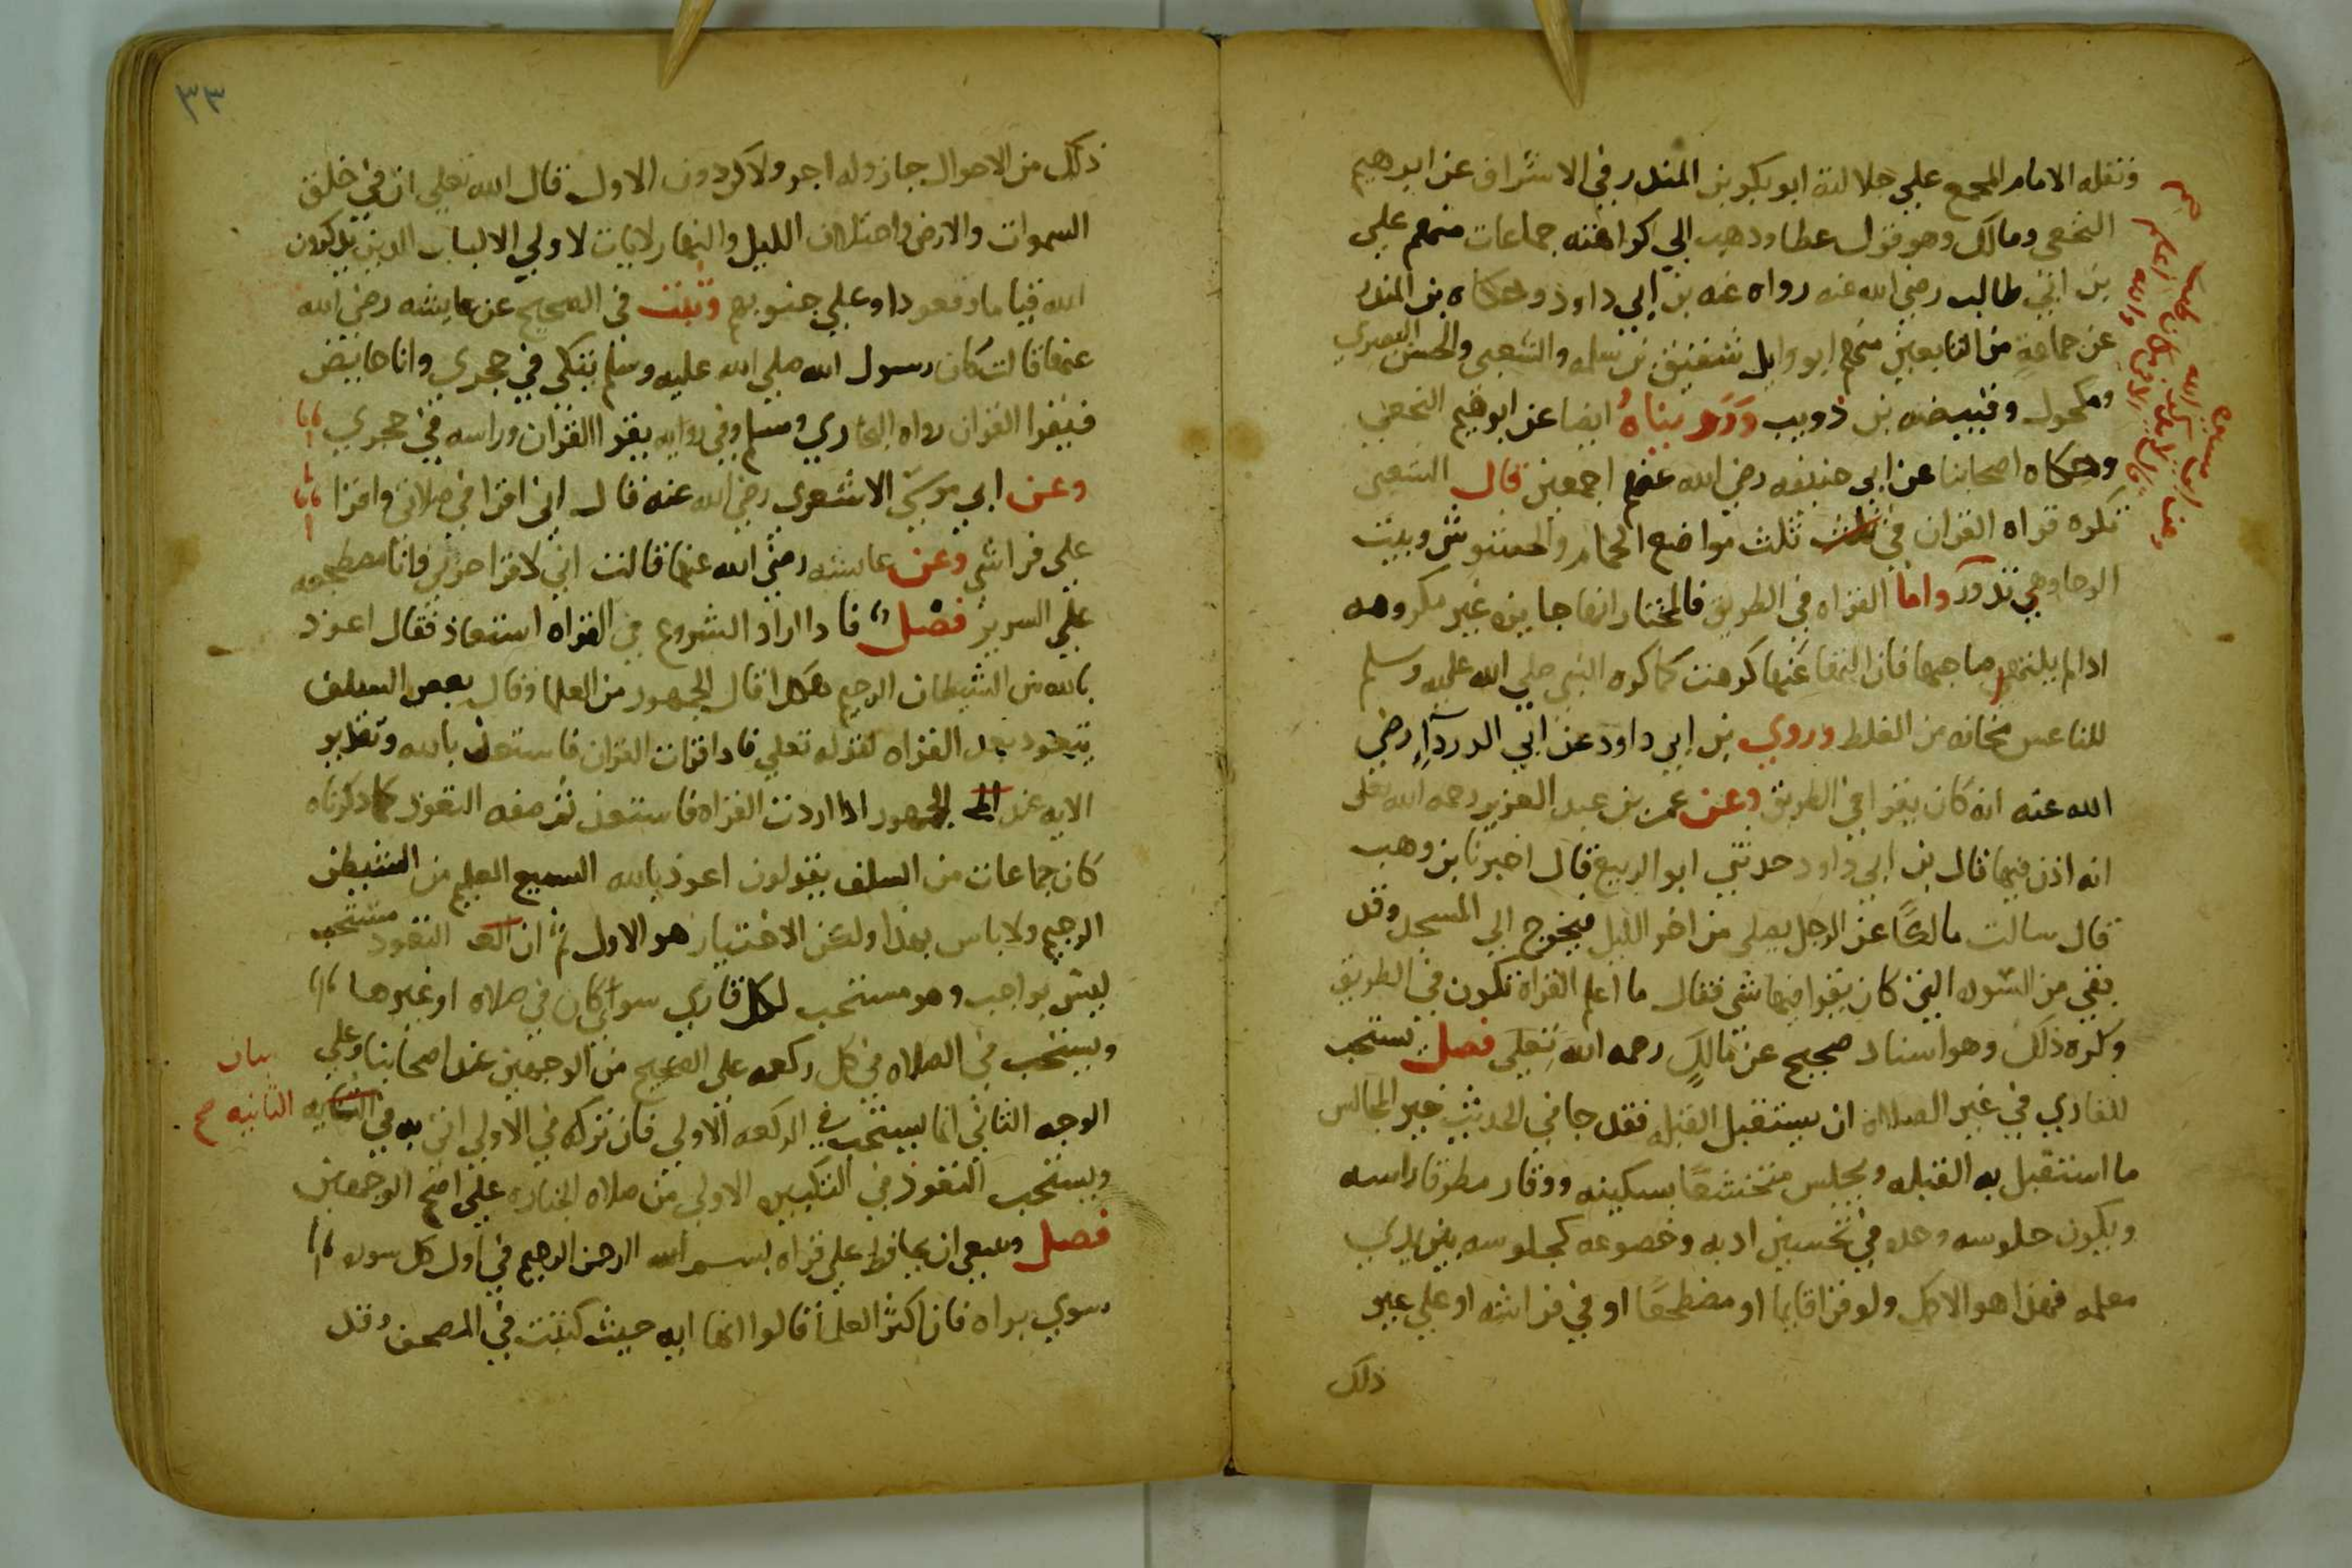 ونقله الامام المجمع علي جلالته ابو بكر بن المندر في الاشراف عن ابرهيم
النخعي ومالك وهو قول عطا ودهب الي كراهته جماعات منهم علي
بن ابي طالب رضي الله عنه رواه عنه بن ابي داود وحكاه بن المندر
عن جماعة من التابعين منهم ابو وايل شقيق بن سلمه والشعبي والحسن البصري
ومكحول وقبيصه بن ذويب ورويناه ايضا عن ابرهيم النخعي
وحكاه اصحابنا عن ابي حنيفه رضي الله عنهم اجمعين قال الشعبي
تكره قراه القران في ثلث مواضع الحمام والحشوش وبيت
الرحا وهي تدور واما القراه في الطريق فالمختار انها جايزه غير مكروهه
ادا لم يلتهي صاحبها فان التها عنها كرهت كما كره النبي صلي الله عليه وسلم
للناعس مخافه من الغلط وروي بن ابي داود عن ابي الدرداء رضي
الله عنه انه كان يقرا في الطريق وعن عمر بن عبد العزيز رحمه الله تعلي
انه اذن فيها قال بن ابي داود حدثني ابو الربيع قال اخبرنا بن وهب
قال سالت مالكا عن الرجل يصلي من اخر الليل فيخرج الي المسجد وقد
بقي من السوره التي كان يقرا فيها شي فقال ما اعلم القراة تكون في الطريق
وكره ذلك وهو اسناد صحيح عن مالك رحمه الله تعلي فصل يستحب
للقاري في غير الصلاة ان يستقبل القبله فقد جا في الحديث خير المجالس
ما استقبل به القبله ويجلس متخشعا بسكينه ووقار مطرقا راسه
ويكون جلوسه وحده في تحسين ادبه وخضوعه كجلوسه بين يدي
معلمه فهذا هو الاكمل ولو قرا قايما او مضطجعا او في فراشه او علي غير
ذلك
٣٣
ذلك من الاحوال جاز وله اجر ولاكن دون الاول قال الله تعلي ان في خلق
السموات والارض واختلاف الليل والنهار لايات لاولي الالباب الدين يدكرون
الله قياما وقعودا وعلي جنوبهم وثبت في الصحيح عن عايشه رضي الله
عنها قالت كان رسول الله صلي الله عليه وسلم يتكي في حجري وانا حايض
فيقرا القران رواه البخاري ومسلم وفي روايه يقرا القران وراسه في حجري
وعن ابي موسي الاشعري رضي الله عنه قال اني اقرا في صلاتي واقرا
علي فراشي وعن عايشه رضي الله عنها قالت اني لاقرا حزبي وانا مضطجعه
علي السرير فصل فادا اراد الشروع في القراه استعاذ فقال اعوذ
بالله من الشيطان الرجيم هكدا قال الجمهور من العلما وقال بعض السلف
يتعود بعد القراه لقوله تعلي فادا قرات القران فاستعذ بالله وتقدير
الايه عند الجمهور ادا اردت القراه فاستعذ ثم صفه التعوذ كما دكرناه
كان جماعات من السلف يقولون اعوذ بالله السميع العليم من الشيطن
الرجيم ولا باس بهذا ولكن الاختيار هو الاول ثم ان التعوذ مستحب
ليس بواجب وهو مستحب لكل قاري سوا كان في صلاه او غيرها
ويستحب في الصلاه في كل ركعه علي الصحيح من الوجهين عند اصحابنا وعلي
الوجه الثاني انما يستحب في الركعه الاولي فان تركه في الاولي اتي به في الثانيه
بيان
الثانيه صح
ويستحب التعوذ في التكبيره الاولي من صلاه الجنازه علي اصح الوجهين
فصل وينبغي ان يحافظ علي قراه بسم الله الرحمن الرحيم في اول كل سوره
سوي براه فان اكثر العلما قالوا انها ايه حيث كتبت في المصحف وقد